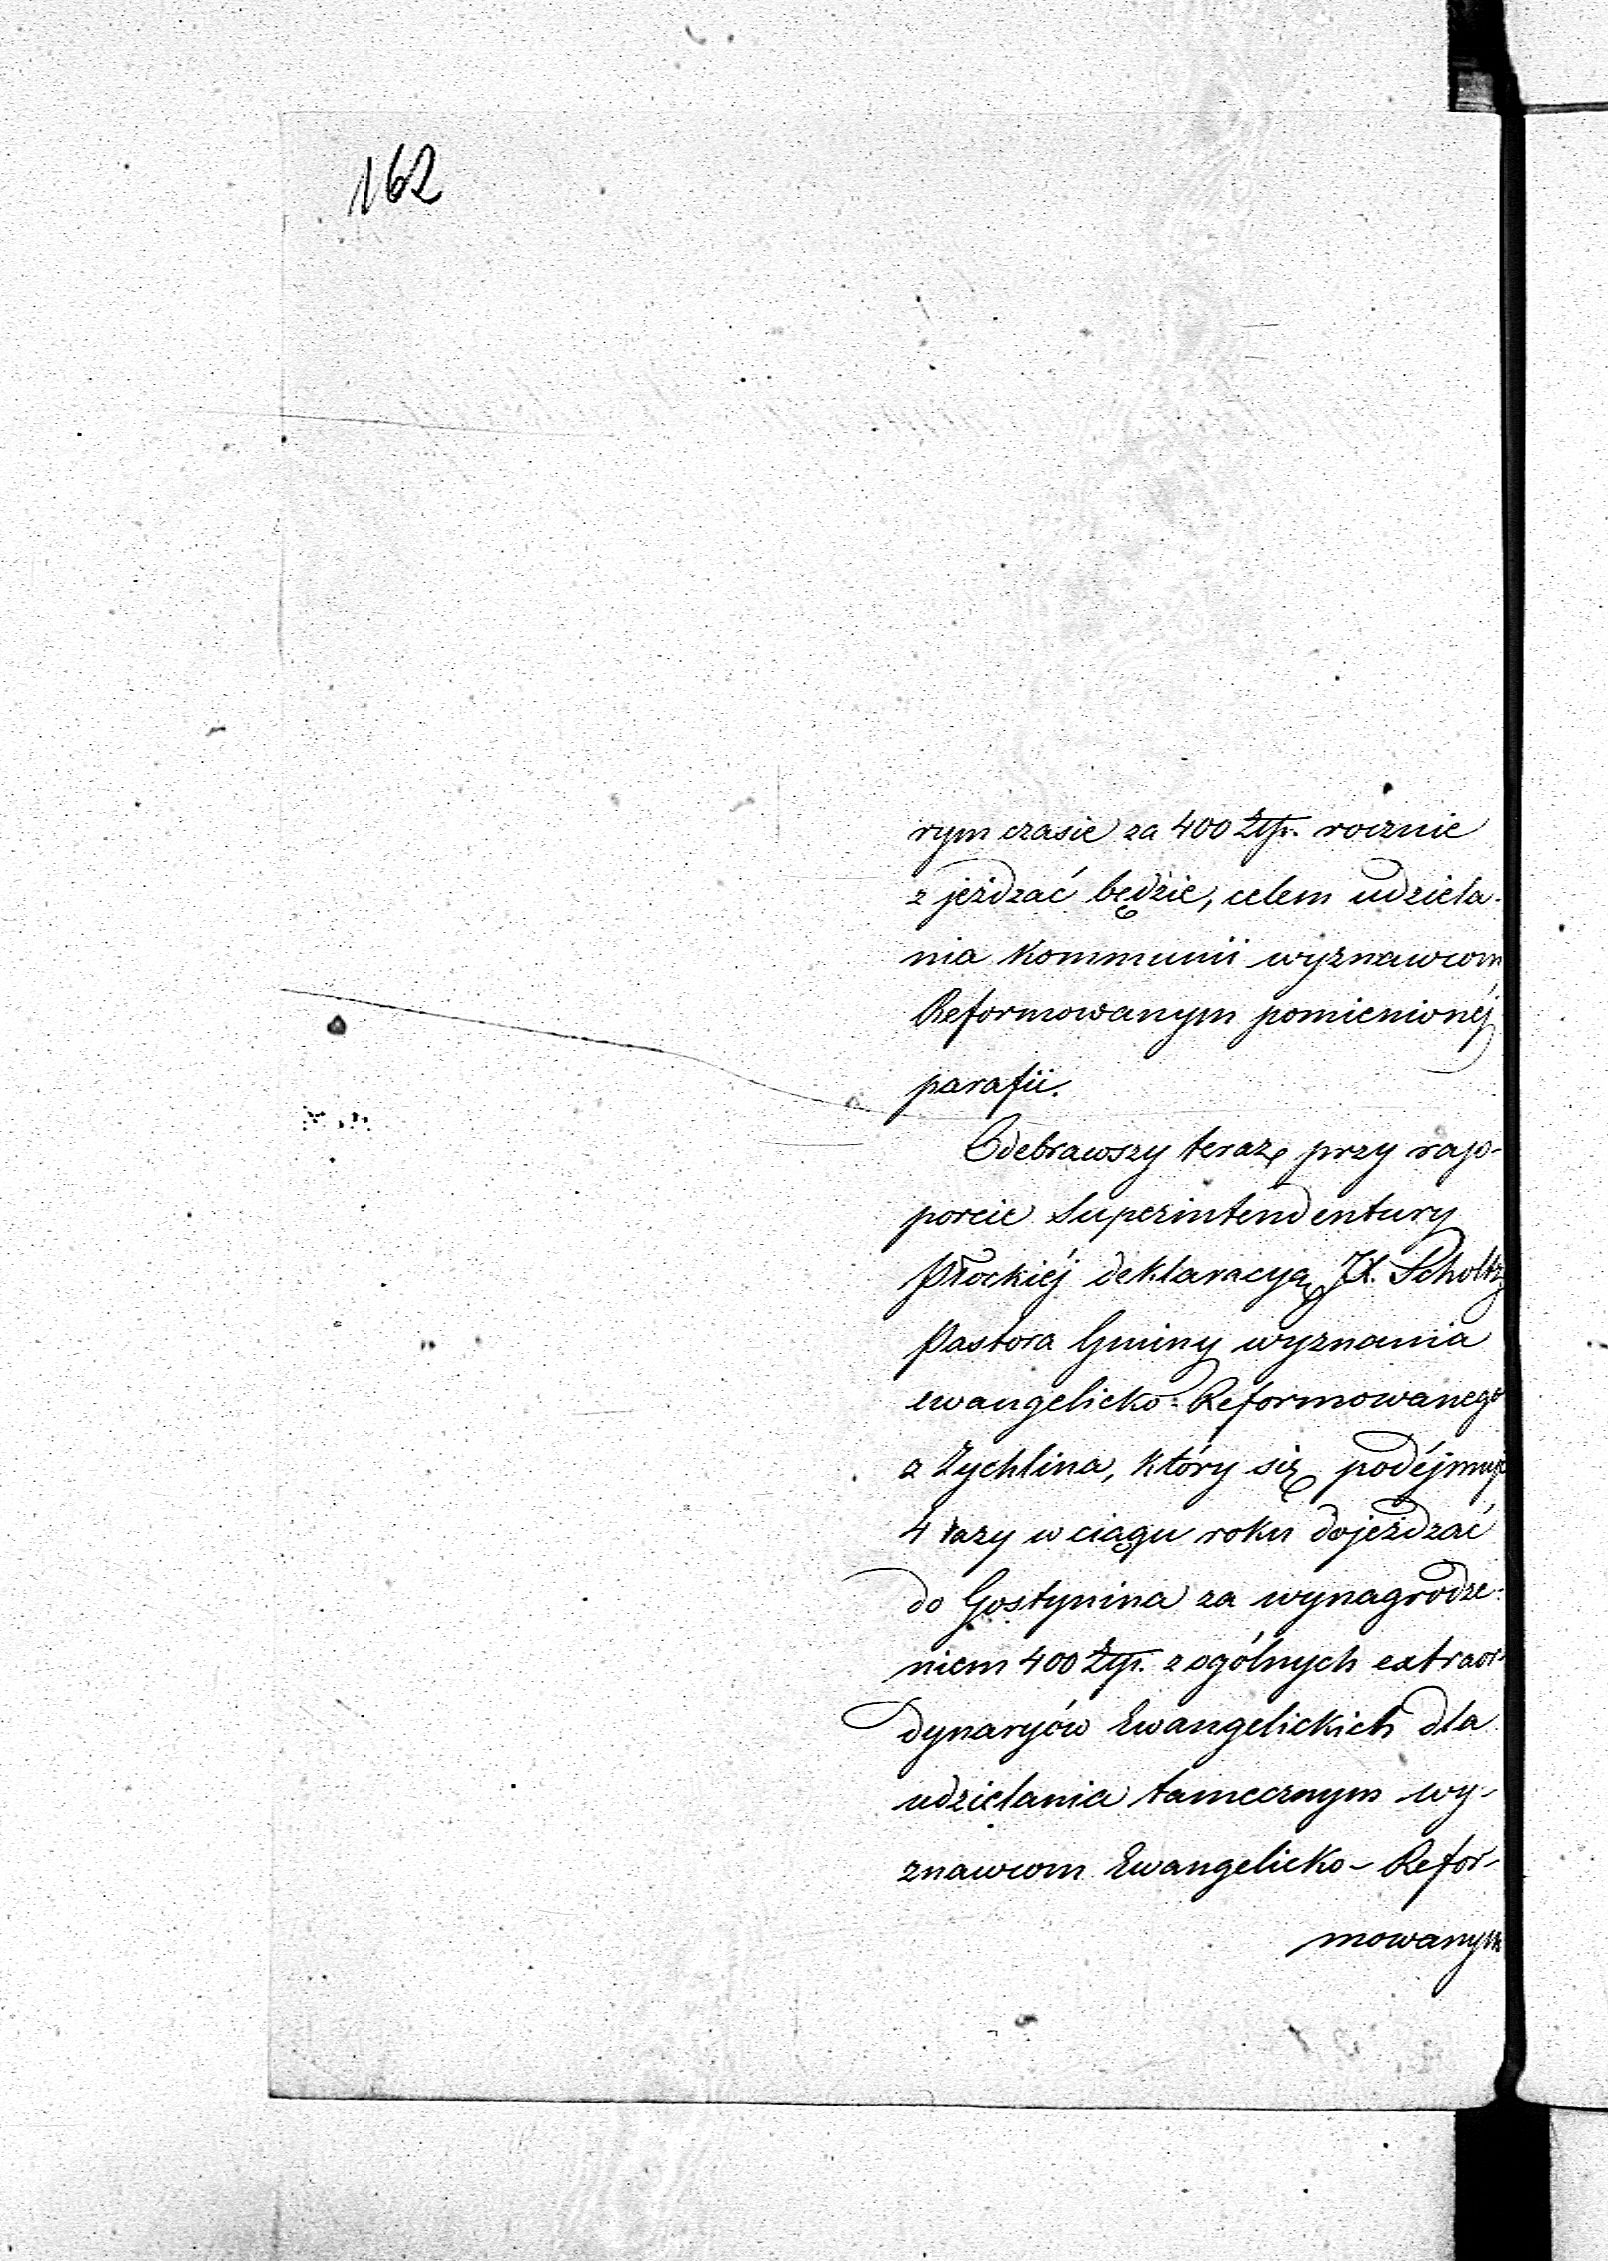 162
rym czasie za 400 Złp. rocznie
zjeżdzać będzie, celem udziela-
nia Kommunii wyznawcom
Reformowanym pomienionéj
parafii.
Odebrawszy teraz, przy rap-
porcie Superintendentury
Płockiéj deklaracyą JX. Scholtz,
Pastora Gminy wyznania
ewangelicko-Reformowanego
z Żychlina, który się podéjmuje
4 razy w ciągu roku dojeżdzać
do Gostynina za wynagrodze-
niem 400 Złp. z ogólnych extraor-
dynaryów Ewangelickich dla
udzielania tamecznym wy-
znawcom Ewangelicko-Refor-
mowanym